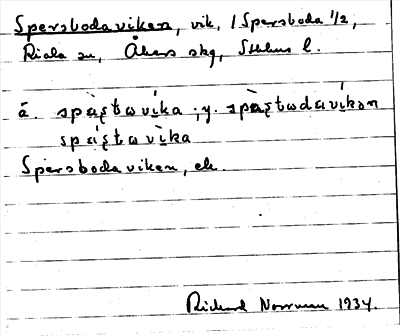 Spersbodaviken, vik, i Spersboda 1/2,
Riala sn, Åkers skg, Sthlms l.
ä. spàʂtωvi̇́ka ; y. spàʂtωdavi̇́kən
spáʂtωvi̇̀ka
Spersbodaviken, ek.
Richard Norrman 1934.